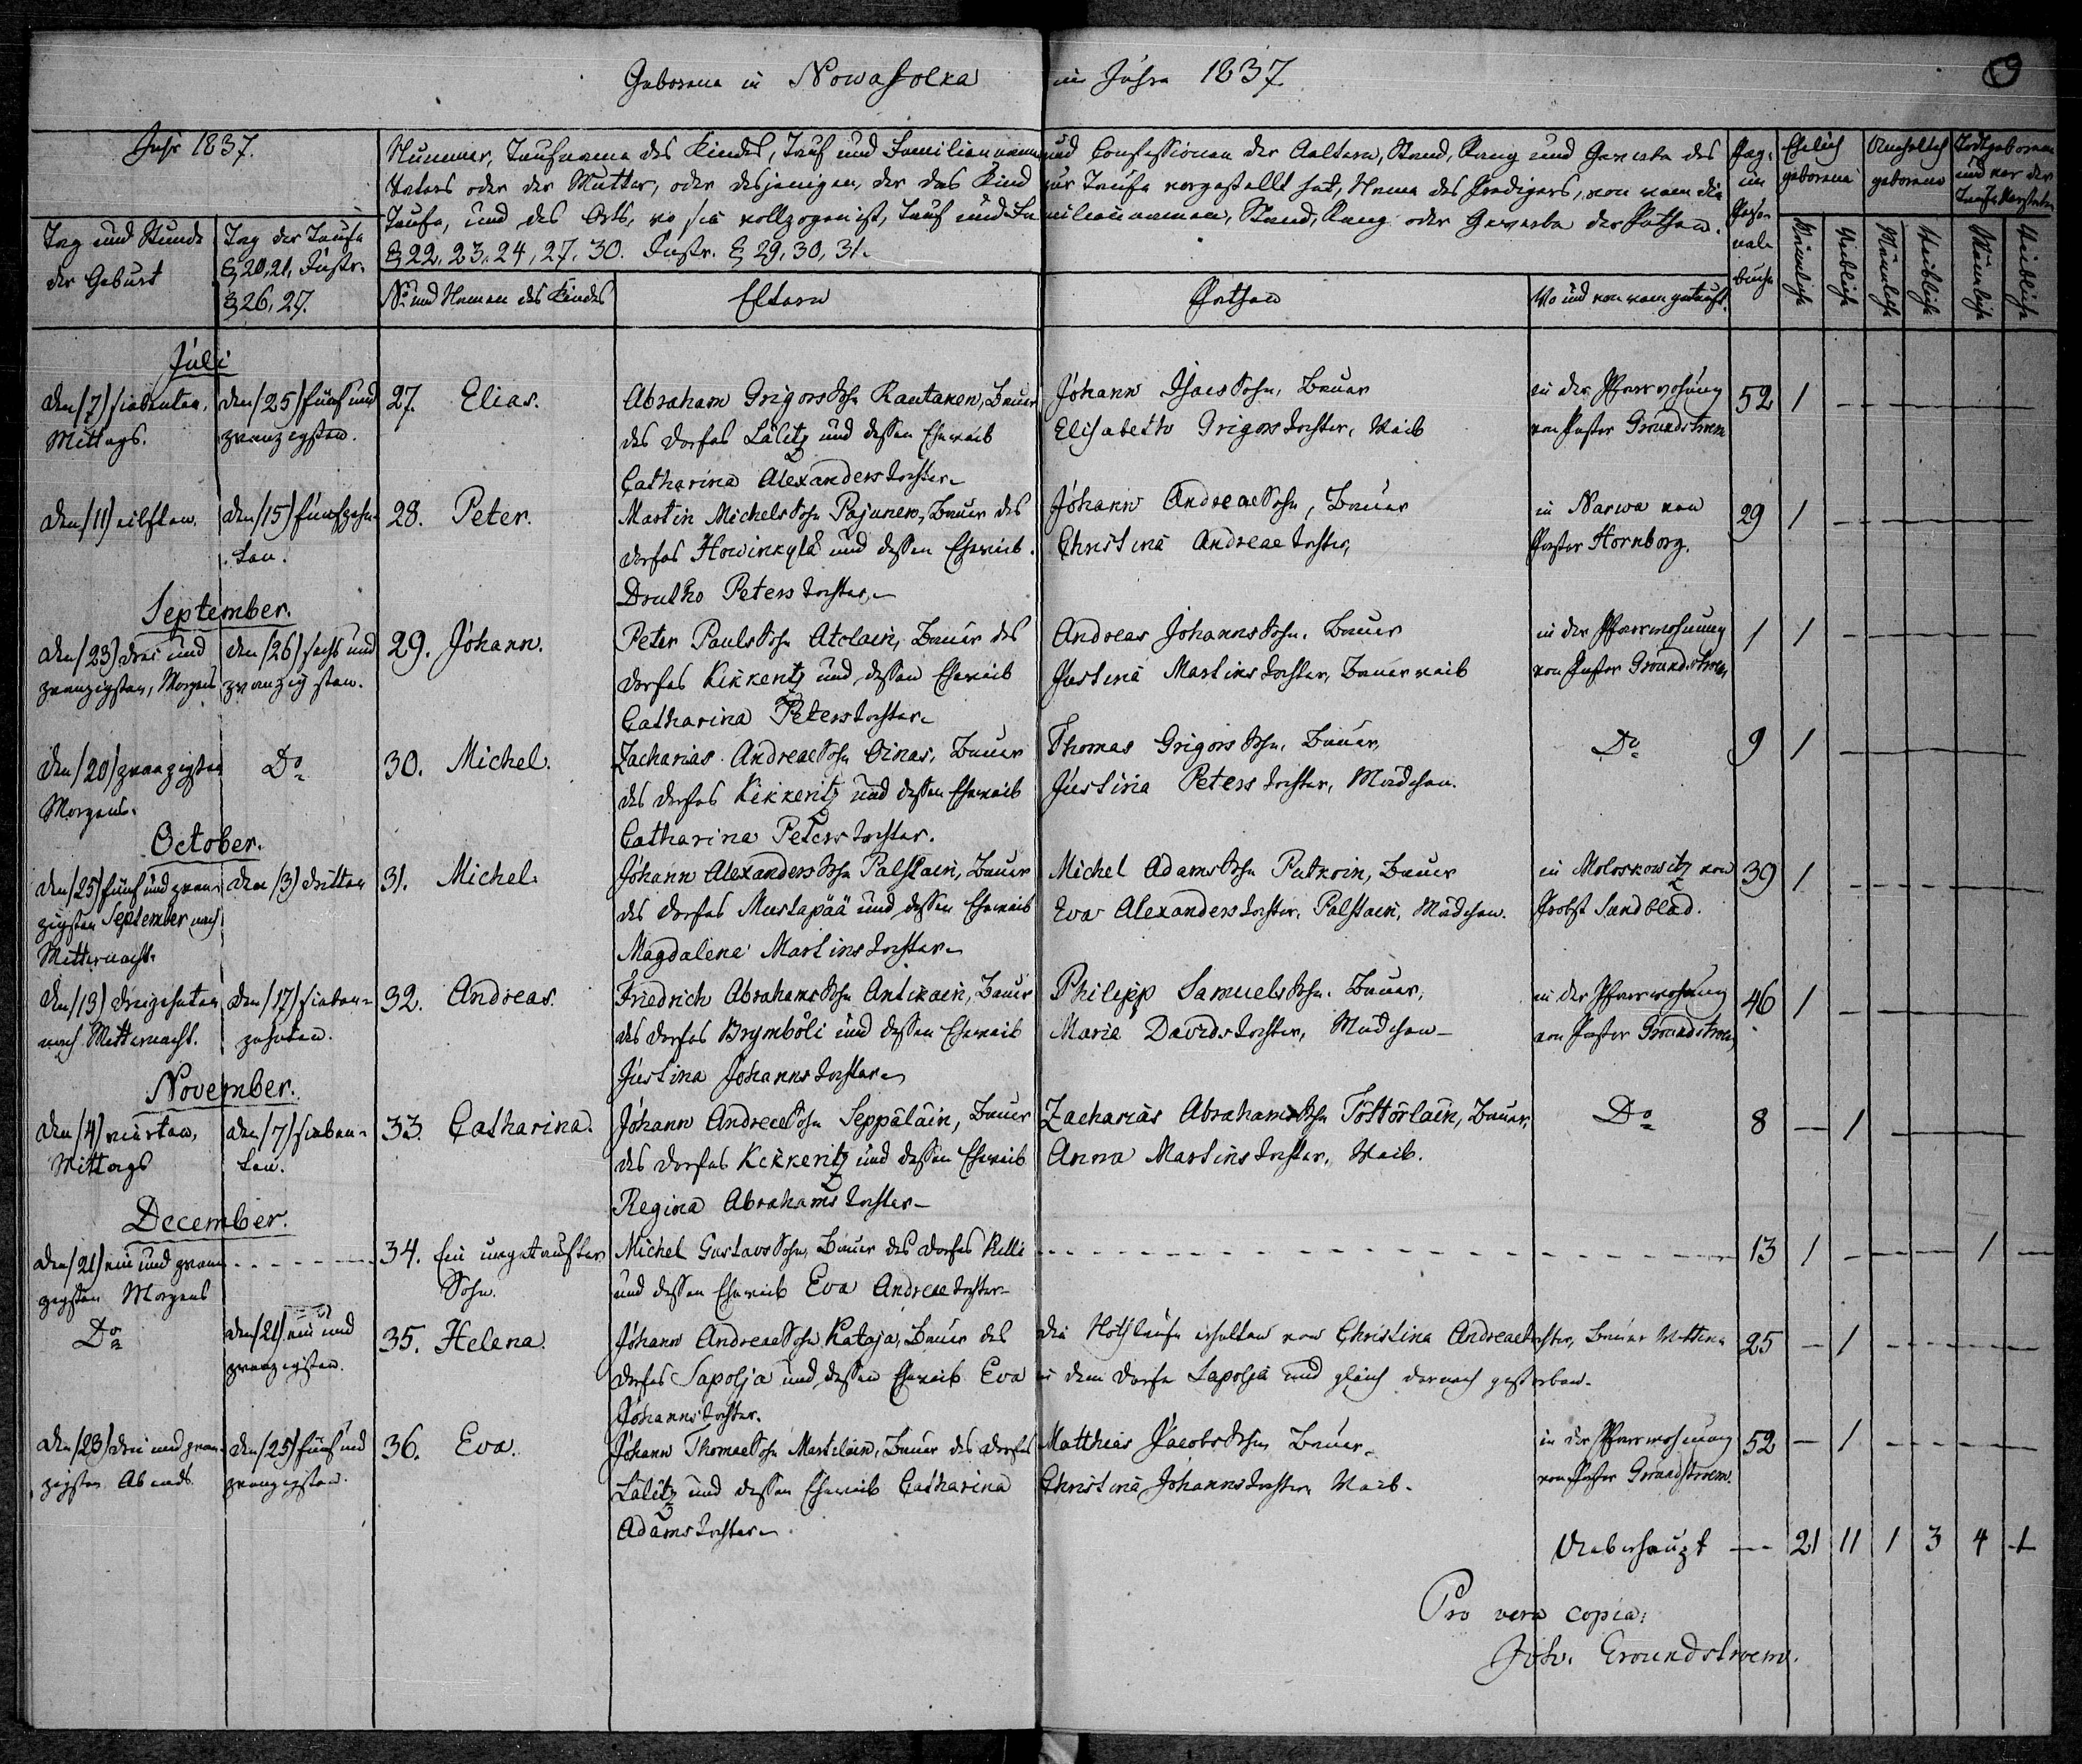 Geborene in Nowasolka im Jahre 1837
9
Jahr 1837.
Nummer, Taufname des Kindes, Tauf und Familienname und Confessionen der Aeltern, Stand, Rang und Gewerbe des
Vaters oder der Mutter, oder desjenigen, der das Kind zur Taufe vorgestellt hat, Name des Predigers, von wem die
Taufe, und des Orts, wo sie vollzogen ist, Tauf und Familiennamen, Stand, Rang oder Gewerbe der Pathen.
§ 22, 23, 24, 27, 30. Instr. § 29, 30, 31.
Tag und Stunde
der Geburt
Tag der Taufe
§ 20, 21, Instr.
§ 26, 27.
No und Namen des Kindes
Eltern
Pathen
Wo und von wem getauft.
Pag.
im
Perso-
nal-
buche
Ehelich
geborene
Unehelich
geborene
Todtgeborene
und vor der
Taufe Verstorbene
Männliche
Weibliche
Männliche
Weibliche
Männliche
Weibliche
Juli
den (7) siebenten,
Mittags.
den (25) fünf und
zwanzigsten.
27. Elias.
Abraham Grigors Sohn Rautanen, Bauer
des Dorfes Lälitz und dessen Eheweib
Catharina Alexanders Tochter
Johann Isacs Sohn, Bauer
Elisabeth Grigors Tochter, Weib
in der Pfarrwohnung
von Pastor Groundstroem
52 1
den (11) eilften.
den (15) fünfzehn-
ten.
28. Peter.
Martin Michels Sohn Pajunen, Bauer des
Dorfes Howinkylä und dessen Eheweib
Drutho Peters Tochter
Johann Andreae Sohn, Bauer
Christina Andreae Tochter,
in Narwa von
Pastor Hornborg.
29 1
September.
den (23) drei und
zwanzigsten, Morgens
den (26) sechs und
zwanzigsten.
29. Johann.
Peter Pauls Sohn Atolain, Bauer des
Dorfes Kikkeritz und dessen Eheweib
Catharina Peters Tochter
Andreas Johanns Sohn, Bauer
Justina Martins Tochter, Bauerweib
in der Pfarrwohnung
von Pastor Groundstroem
1 1
den (20) zwanzigsten
Morgens.
Do
30. Michel.
Zacharias Andreae Sohn Oinas, Bauer
des Dorfes Kikkeritz und dessen Eheweib
Catharina Peters Tochter.
Thomas Grigors Sohn, Bauer,
Justina Peters Tochter, Mädchen.
Do
9 1
October.
den (25) fünf und zwan-
zigsten September nach
Mitternacht.
den (3) dritten
31. Michel.
Johann Alexanders Sohn Palstain, Bauer
des Dorfes Mustapää und dessen Eheweib
Magdalena Martins Tochter
Michel Adams Sohn Putroin, Bauer
Eva Alexanders Tochter, Palstain, Mädchen.
in Moloskowitz von
Probst Sandblad.
39 1
den (13) dreizehnten
nach Mitternacht.
den (17) sieben-
zehnten.
32. Andreas.
Friedrich Abrahams Sohn Antikain, Bauer
des Dorfes Brymböli und dessen Eheweib
Justina Johanns Tochter
Philipp Samuels Sohn, Bauer,
Maria Davids Tochter, Mädchen
in der Pfarrwohnung
von Pastor Groundstroem
46 1
November.
den (4) vierten,
Mittags
den (7) sieben-
ten.
33. Catharina.
Johann Andreae Sohn Seppäläin, Bauer
des Dorfes Kikkeritz und dessen Eheweib
Regina Abrahams Tochter
Zacharias Abrahams Sohn Töttörläin, Bauer,
Anna Martins Tochter, Weib.
Do
8 1
December.
den (21) ein und zwan-
zigsten Morgens
34. Ein ungetaufter
Sohn.
Michel Gustavs Sohn, Bauer des Dorfes Kelli
und dessen Eheweib Eva Andreae Tochter
13 1 1
Do
den (21) ein und
zwanzigsten.
35. Helena.
Johann Andreae Sohn Kataja, Bauer des
Dorfes Sapolja und dessen Eheweib Eva
Johanns Tochter.
die Nothtaufe erhalten von Christina Andreae Tochter, Bauer Wittwe
in dem Dorfe Sapolja und gleich darnach gestorben.
25 1
den (23) drei und zwan-
zigsten Abends.
den (25) fünf und
zwanzigsten.
36. Eva.
Johann Thomae Sohn Martilain, Bauer des Dorfes
Lälitz und dessen Eheweib Catharina
Adams Tochter
Matthias Jacobs Sohn, Bauer
Christina Johanns Tochter, Weib.
in der Pfarrwohnung
von Pastor Groundstroem.
52 1
Ueberhaupt 21 11 1 3 4 1
Pro vera copia:
Joh. Groundstroem.